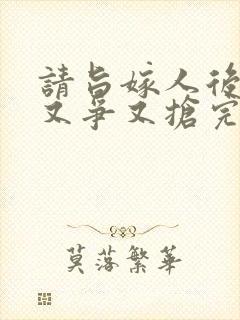 請旨嫁人後
又爭又搶完
莫落繁華